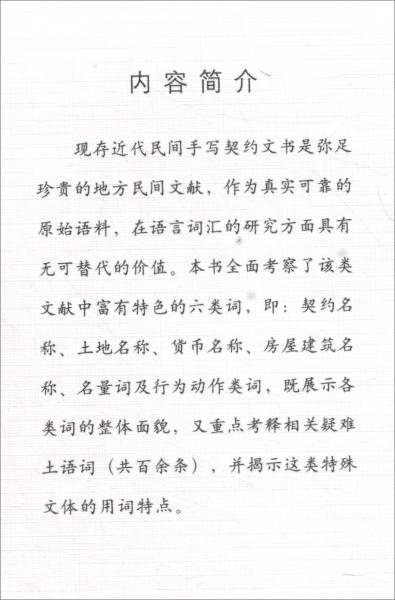 内容简介
现存近代民间手写契约文书是弥足
珍贵的地方民间文献，作为真实可靠的
原始语料，在语言词汇的研究方面具有
无可替代的价值。本书全面考察了该类
文献中富有特色的六类词，即：契约名
称、土地名称、货币名称、房屋建筑名
称、名量词及行为动作类词，既展示各
类词的整体面貌，又重点考释相关疑难
土语词（共百余条），并揭示这类特殊
文体的用词特点。